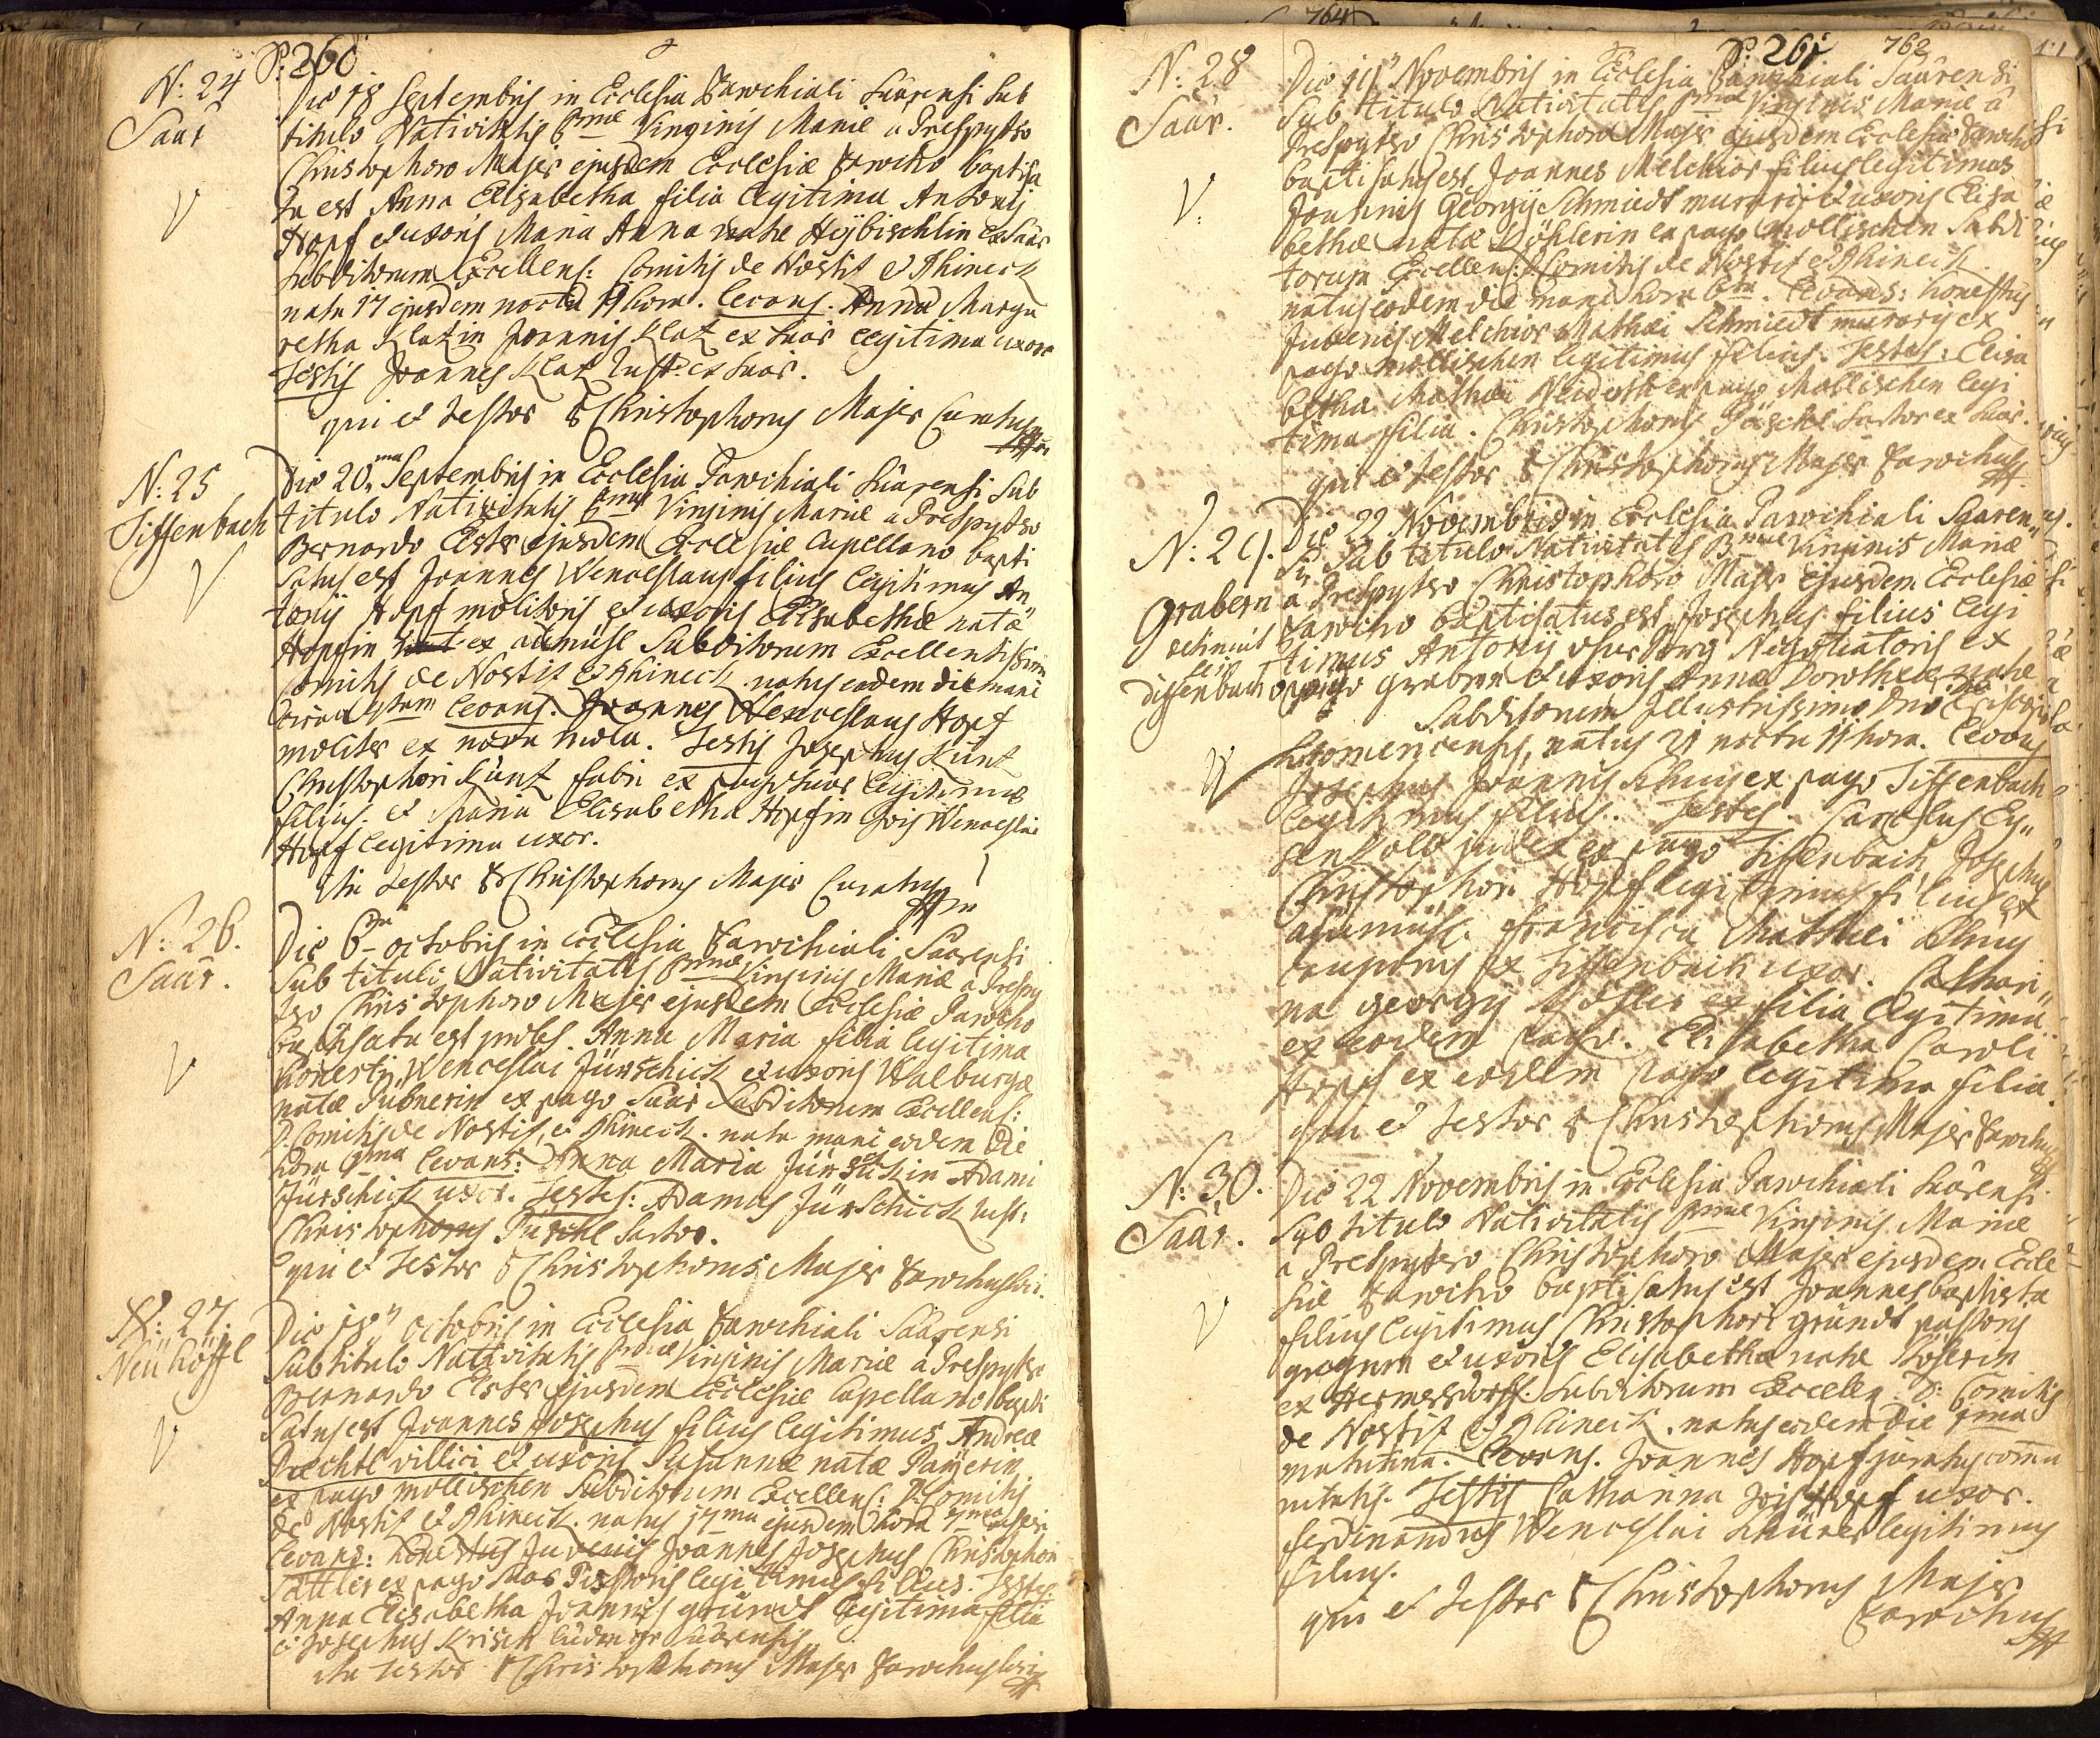 P: 260
N: 24
Saar
Die 18 Septembris in Ecclesia Parochiali Saarensi sub
titulo Nativitatis Bmae Virginis Mariae a Presbytero
Christophoro Majer ejusdem Ecclesiae Parocho baptisa
ta est Anna Elisabetha filia legitima Antonij
Hopf et uxoris Maria Anna natae Heybischlin ex Saar
subditorum Excellens: Comitis de Nostitz et Rhineck
nata 17 ejusdem noctu hora. Levans. Anna Marga
retha Klatzin Joannis Klatz ex Saar legitima uxor
Testis Joannes Klatz ex Saar.
qui et testor Christophorus Majer Curatus
N: 25
Tiffenbach
Die 20ma Septembris in Ecclesia Parochiali Saarensi sub
titulo Nativitatis Bmae Virginis Mariae a Presbytero
Bernardo Ester ejusdem Ecclesiae Capellano bapti
satus est Joannes Wenceslaus filius legitimus An"
tonij Hopf molitoris et uxoris Elisabethae natae
Hopfin ex aumühl subditorum Excellentissimi
Comitis de Nostitz et Rhineck natus eodem die mane
circa Levans. Joannes Wenceslaus Hopf
molitor ex nova mola. Testis Josephus Kuntz
Christophori Kuntz fabri ex pago Saar legitimus
filius. et Maria Elisabetha Hopfin Jois Wenceslai
Hopf legitima uxor.
Ita testor Christophorus Majer Curatus
N: 26.
Saar.
Die 6ta octobris in Ecclesia Parochiali Saarensi
Sub tituli Nativitatis Bmae Virginis Mariae a Presby
tero Christophoro Majer ejusdem Ecclesiae Parocho
baptisata est proles Anna Maria filia legitima
honesti Wenceslai Jürschick et uxoris Walburgae
natae Pubnerin ex pago Saar subditorum Excellens:
D. Comitis de Nostitz et Rhineck. nata mane eodem die
hora Levans: Anna Maria Jürschickin Adami
Jürschick uxor. Testes: Adamus Jürschick
Christophorus Püschl Sartor.
qui et testor Christophorus Majer Parochus loci.
N: 27.
Neuhöffl
Die 18 octobris in Ecclesia Parochiali Saarensi
Sub titulo Nativitatis Bmae Virginis Mariae a Presbytero
Bernardo Ester ejusdem Ecclesiae Capellano bapti
satus est Joannes Josephus filius legitimus Andreae
villici et uxoris Susannae natae
ex pago mollischen Subditorum Excellens: D: Comitis
de Nostitz et Rhineck. natus 17ma ejusdem hora
Levans: honestus Juvenis Joannes Josephus Christophori
Sattler ex pago Saar Pistoris legitimus filius. Testes
Anna Elisabetha Joannis gründt legitima filia
et Josephus Krisch Saarensis
ita testor Christophorus Majer Parochus loci
764
P: 261
762
N: 28
Saar.
Die 19 Novembris in Ecclesia Parochiali Saarensi
Sub titulo Nativitatis Bmae Virginis Mariae a
Presbytero Christophoro Majer ejusdem Ecclesiae Parocho
baptisatus est Joannes Melchior filius legitimus
Joannis Georgij Schmiedt murarij et uxoris Elisa
bethae natae Köhlerin ex pago Mollischen Subdi
torum Excellens: Comitis de Nostitz et Rhineck
natus eodem die mane hora 6ta. Levans: honestus
Juvenis Melchior Mathaei Schmiedt murarij ex
pago Mollischen legitimus filius. Testes: Elisa
betha Mathaei ex pago Mollischen legi
tima filia. Christophorus Püschl Sartor ex Saar.
qui et testor Christophorus Majer Parochus
N: 29.
Grabern
Die 22 Novembris in Ecclesia Parochiali Saaren"
si Sub titulo Nativitatis Bmae Virginis Mariae
a Presbytero Christophoro Majer ejusdem Ecclesiae
Parocho baptisatus est Josephus filius legi
timus Antonij Negotiatoris ex
pago grabern et uxoris Anna Dorothea natae
Subditorum Illustrissimi Dni Episcopi
Litomericensis, natus 21 noctu 11 hora. Levans
Josephus Joannis ex pago Tiffenbach
legitimus filius. Testes. Carolus Ey"
judex ex pago Tiffenbach, Josephus
Christophori Hopf legitimus filius ex
aumühl. francisca Mathaei
cauponis ex Tiffenbach uxor. Cathari"
na georgij ex filia legitima
ex eodem pago. Elisabetha Caroli
Hopf ex eodem pago legitima filia.
qui et testor Christophorus Majer Parochus
N: 30.
Saar.
Die 22 Novembris in Ecclesia Parochiali Saarensi
Sub titulo Nativitatis Bmae Virginis Mariae
a Presbytero Christophoro Majer ejusdem Eccle
siae Parocho baptisatus est Joannes baptista
filius legitimus Christophori gründt pastoris
gregum et uxoris Elisabetha natae
ex Hermersdorff. Subditorum Excellen. D: Comitis
de Nostitz et Rhineck. natus eodem die 1ma
matutina. Levans. Joannes Hopf juratus comu
nitatis. Testis Catharina Jois Hopf uxor.
ferdinandus Wenceslai legitimus
filius.
qui et testor Christophorus Majer
Parochus